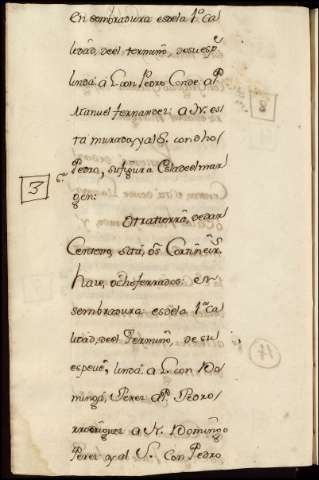 en sembradura es de la 1ª ca
lidad, de el termino, de su esp.ᵉ
linda a L con Pedro Conde al P.
Manuel fernandez: a N. es
ta murada, y al S. con dho
Pedro, su figura es la de el mar
gen:
3
Otra tierra, de dar
Centeno,
have, ocho ferrados: en
sembradura es de la 1ª ca
lidad, de el Termino, de su
espeue, linda a L. con Do
minga, Perez al P. Pedro
rrodriguez a N. Domingo
Perez y al S. con Pedro